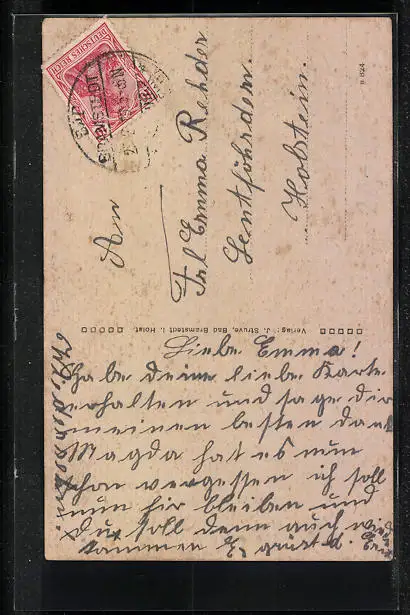 DEUTSCHES REICH
BAD
BRAMSTEDT
An
Frl Emma Rehder
Lentföhrdern
Holstein.
B 824
Verlag: J. Struve, Bad Bramstedt i. Holst.
Liebe Emma!
habe deine liebe Karte
erhalten und sage dir
meinen besten dank
Magda hat es nun
schon vergessen ich soll
nun hir bleiben und
Du soll denn auch
kommen Es grüst d.